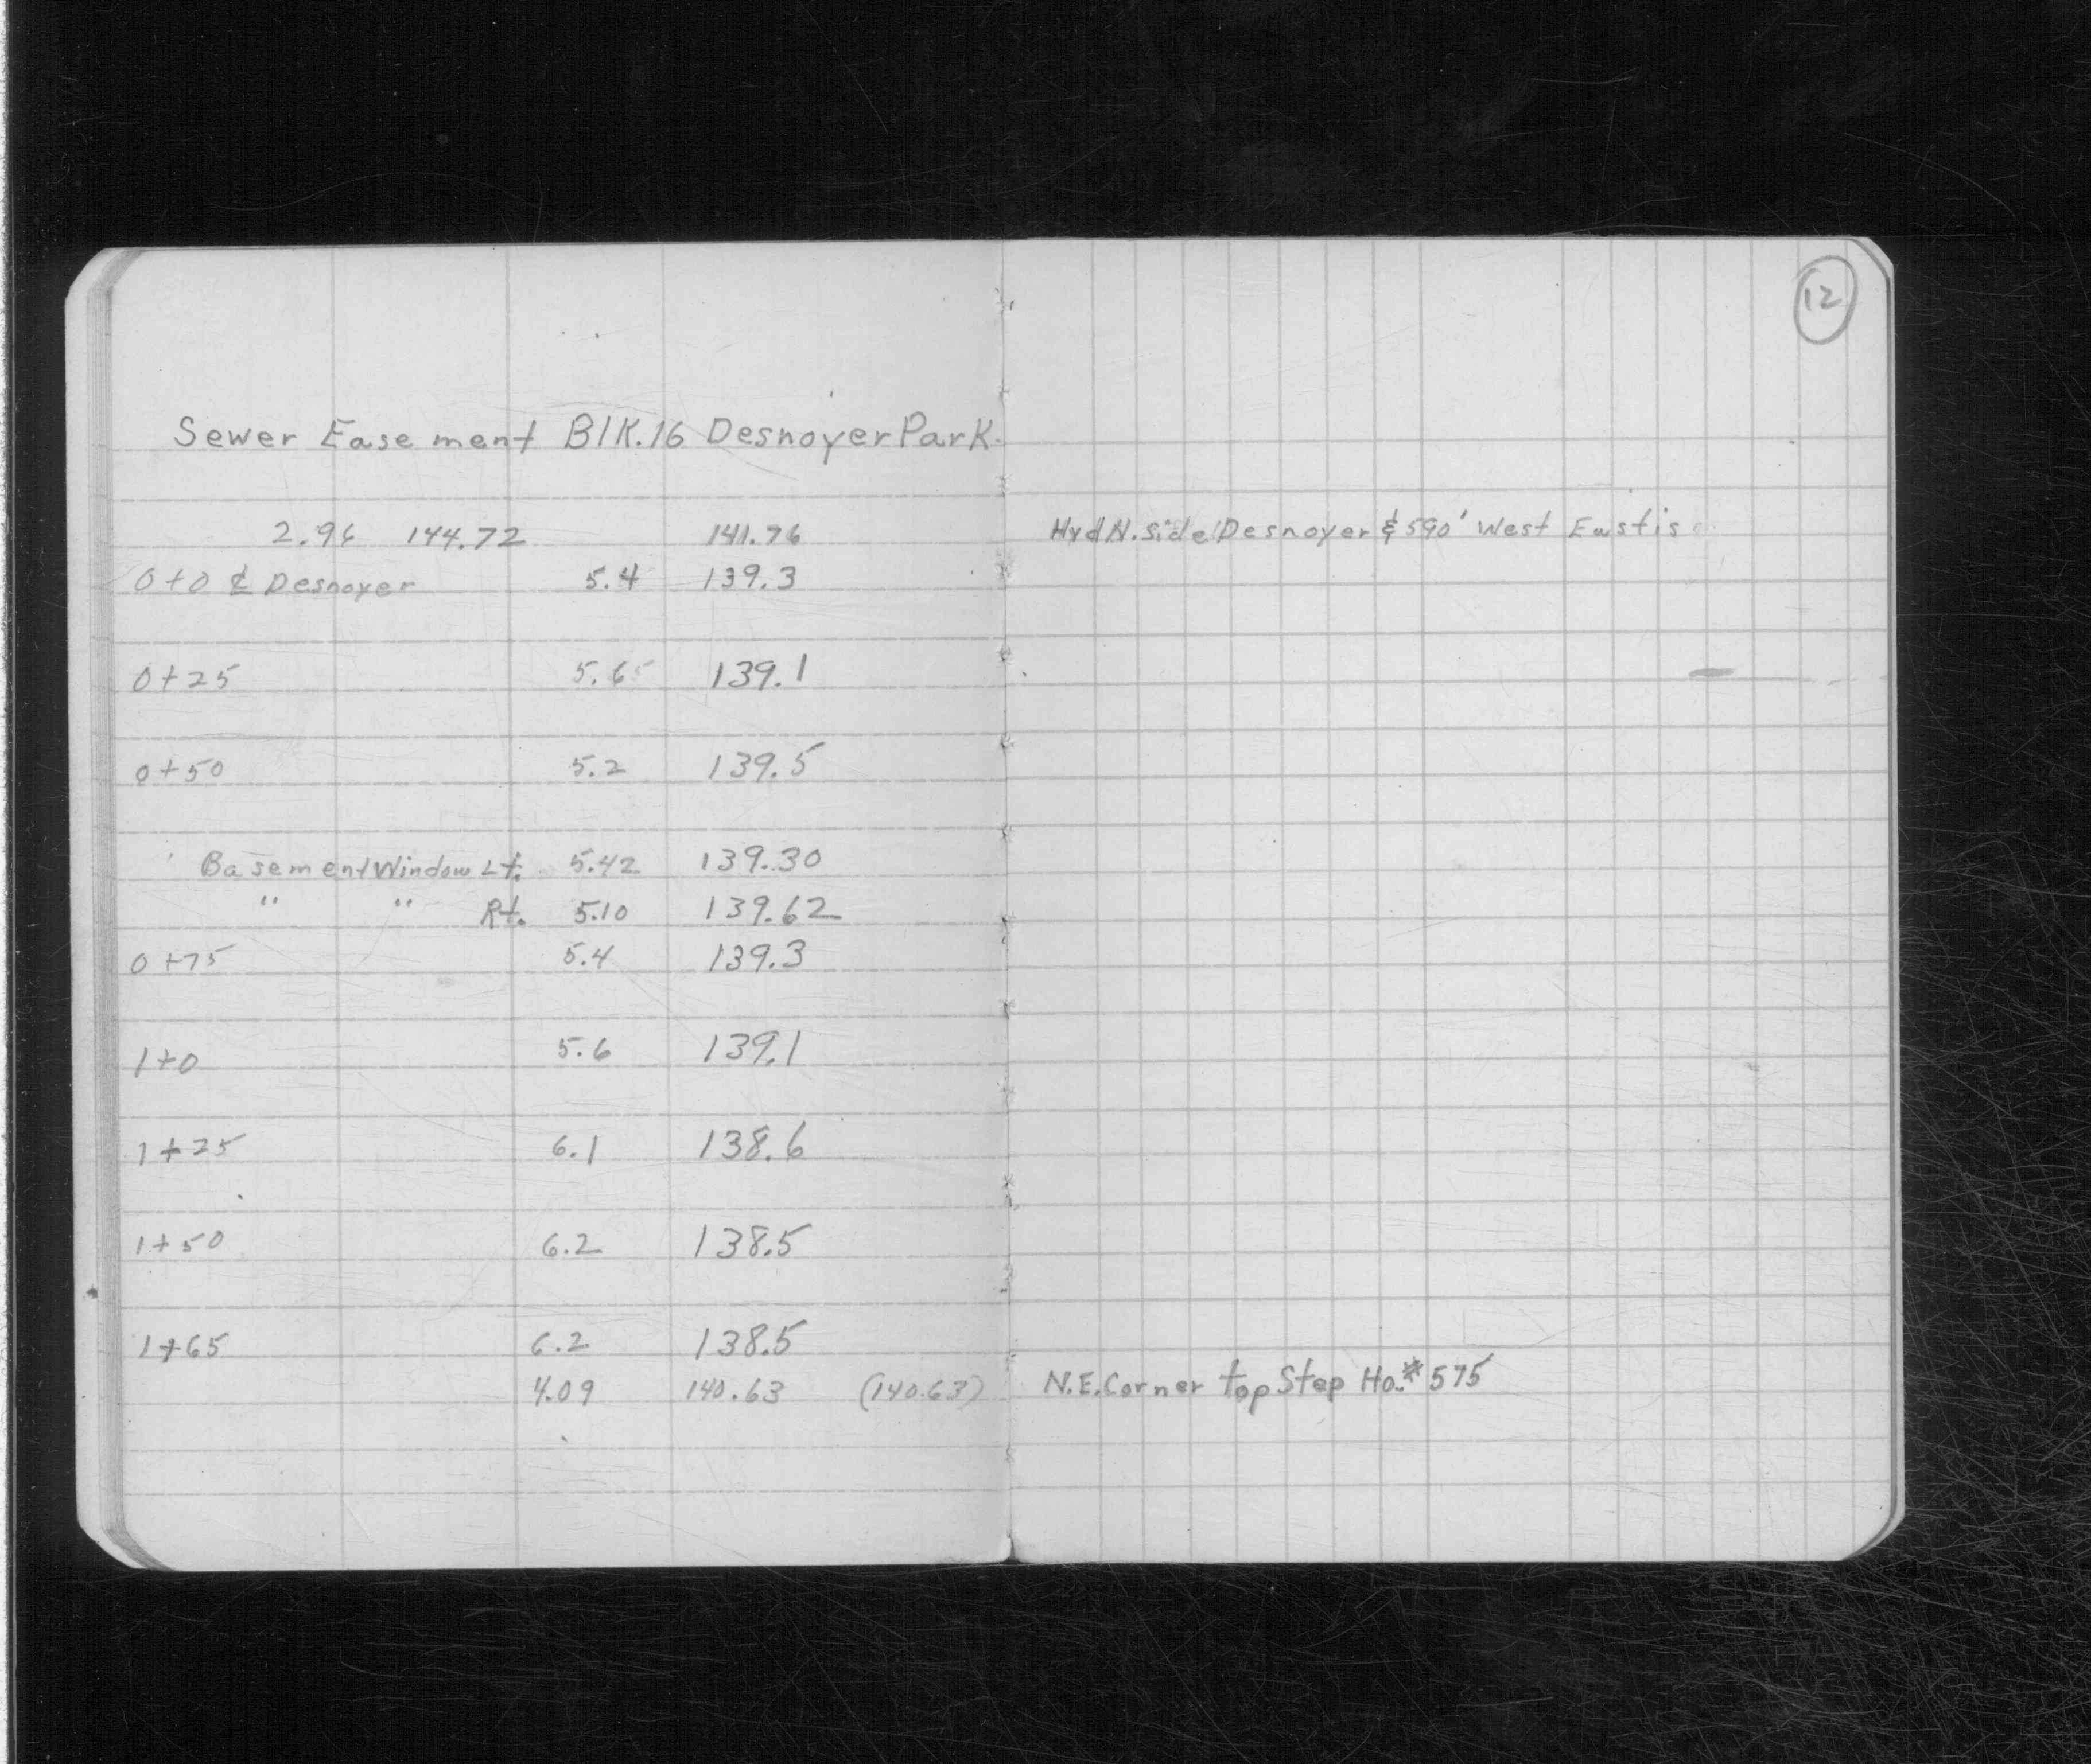 12
Sewer Easement Blk.16 Desnoyer Park.
2.96 144.72 141.76 Hyd N. side Desnoyer & 590' West Eustis
0+0 ℄ Desnoyer 5.4 139.3
0+25 5.6 139.1
0+50 5.2 139.5
Basement Window Lt. 5.42 139.30
" " Rt. 5.10 139.62
0+75 5.4 139.3
1+0 5.6 139.1
1+25 6.1 138.6
1+50 6.2 138.5
1+65 6.2 138.5
4.09 140.63 (140.63) N.E. Corner top Step Ho. # 575